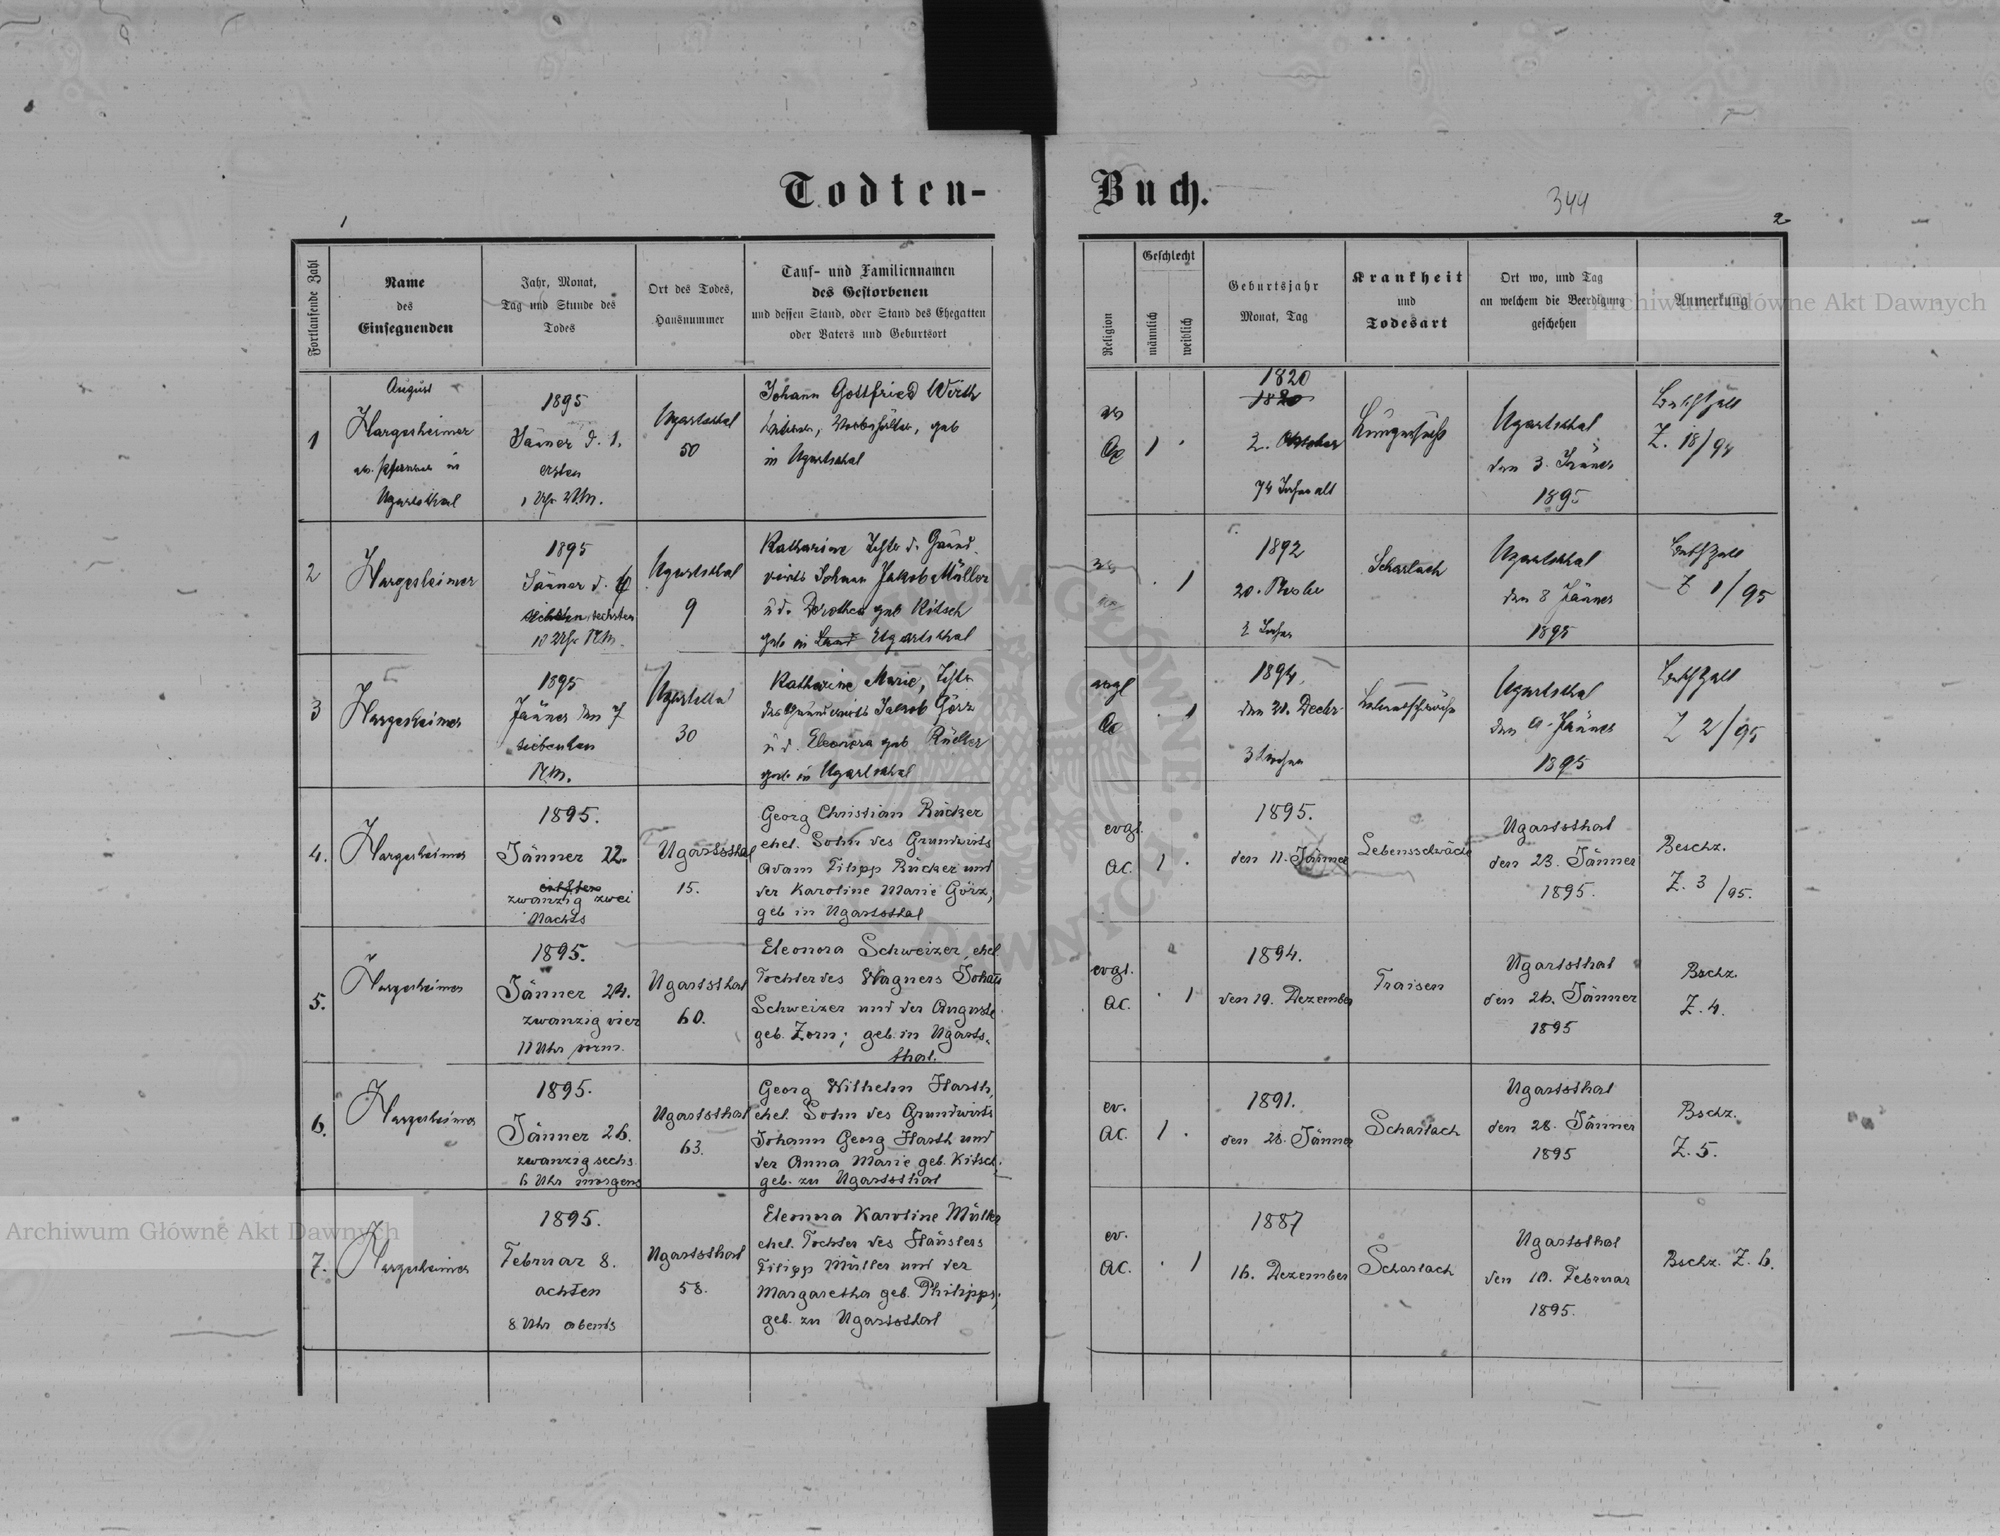 Todten- Buch.
344
1
2
Fortlaufende Zahl
Name
des
Einsegnenden
Jahr, Monat,
Tag und Stunde des
Todes
Ort des Todes,
Hausnummer
Tauf- und Familiennamen
des Gestorbenen
und dessen Stand, oder Stand des Ehegatten
oder Vaters und Geburtsort
Religion
Geschlecht
männlich
weiblich
Geburtsjahr
Monat, Tag
Krankheit
und
Todesart
Ort wo, und Tag
an welchem die Beerdigung
geschehen
Anmerkung
Archiwum Główne Akt Dawnych
1
August
Hargesheimer
ev. Pfarrer in
Ugartsthal
1895
Jänner d. 1.
ersten
1 Uhr
Ugartsthal
50
Johann Gottfried Wirth
geb
in Ugartsthal
1
1820
1820
2. Oktober
74 Jahre alt
Ugartsthal
den 3. Jänner
1895
Z. 18/94
2
Hargesheimer
1895
Jänner d. 6
sechsten
10 Uhr NM.
Ugartsthal
9
Katharine Tchtr d. Grund-
wirts Johann Jakob Müller
u d. Dorothea geb Kitsch
geb in Ugartsthal
1
1892
2 Jahre
Scharlach
Ugartsthal
den 8 Jänner
1895
Z 1/95
3
Hargesheimer
1895
Jänner den 7
siebenten
NM.
Ugartsthal
30
Katharine Marie, Tchtr
des Grundwirts Jakob Görz
u d. Eleonora geb Rücker
geb in Ugartsthal
evgl
AC
1
1894
3 Wochen
Lebensschwäche
Ugartsthal
den 9. Jänner
1895
Z 2/95
4.
Hargesheimer
1895.
Jänner 22.
zwanzig zwei
Nachts
Ugartsthal
15.
Georg Christian Rücker
ehel. Sohn des Grundwirts
Adam Filipp Rücker und
der Karoline Marie Görz,
geb in Ugartsthal
evgl.
AC.
1
1895.
den 11. Jänner
Lebensschwäche
Ugartsthal
den 23. Jänner
1895.
Beschz.
Z. 3/95.
5.
Hargesheimer
1895.
Jänner 24.
zwanzig vier
11 Uhr vorm.
Ugartsthal
60.
Eleonora Schweizer, ehel
Tochter des Wagners Johan
Schweizer und der Auguste
geb. Zorn; geb. in Ugarts-
thal.
evgl.
AC.
1
1894.
den 19. Dezember
Fraisen
Ugartsthal
den 26. Jänner
1895
Bschz.
Z. 4.
6.
Hargesheimer
1895.
Jänner 26.
zwanzig sechs
6 Uhr morgens
Ugartsthal
63.
Georg Wilhelm Harth,
ehel. Sohn des Grundwirts
Johann Georg Harth und
der Anna Marie geb. Kitsch,
geb. zu Ugartsthal
ev.
AC.
1
1891.
den 28. Jänner
Scharlach
Ugartsthal
den 28. Jänner
1895
Bschz.
Z. 5.
7.
Hargesheimer
1895.
Februar 8.
achten
8 Uhr abends
Ugartsthal
58.
Eleonora Karoline Müller
ehel. Tochter des Häuslers
Filipp Müller und der
Margaretha geb. Philipps;
geb. zu Ugartsthal
ev.
AC.
1
1887
16. Dezember
Scharlach
Ugartsthal
den 10. Februar
1895.
Bschz. Z. 6.
Archiwum Główne Akt Dawnych